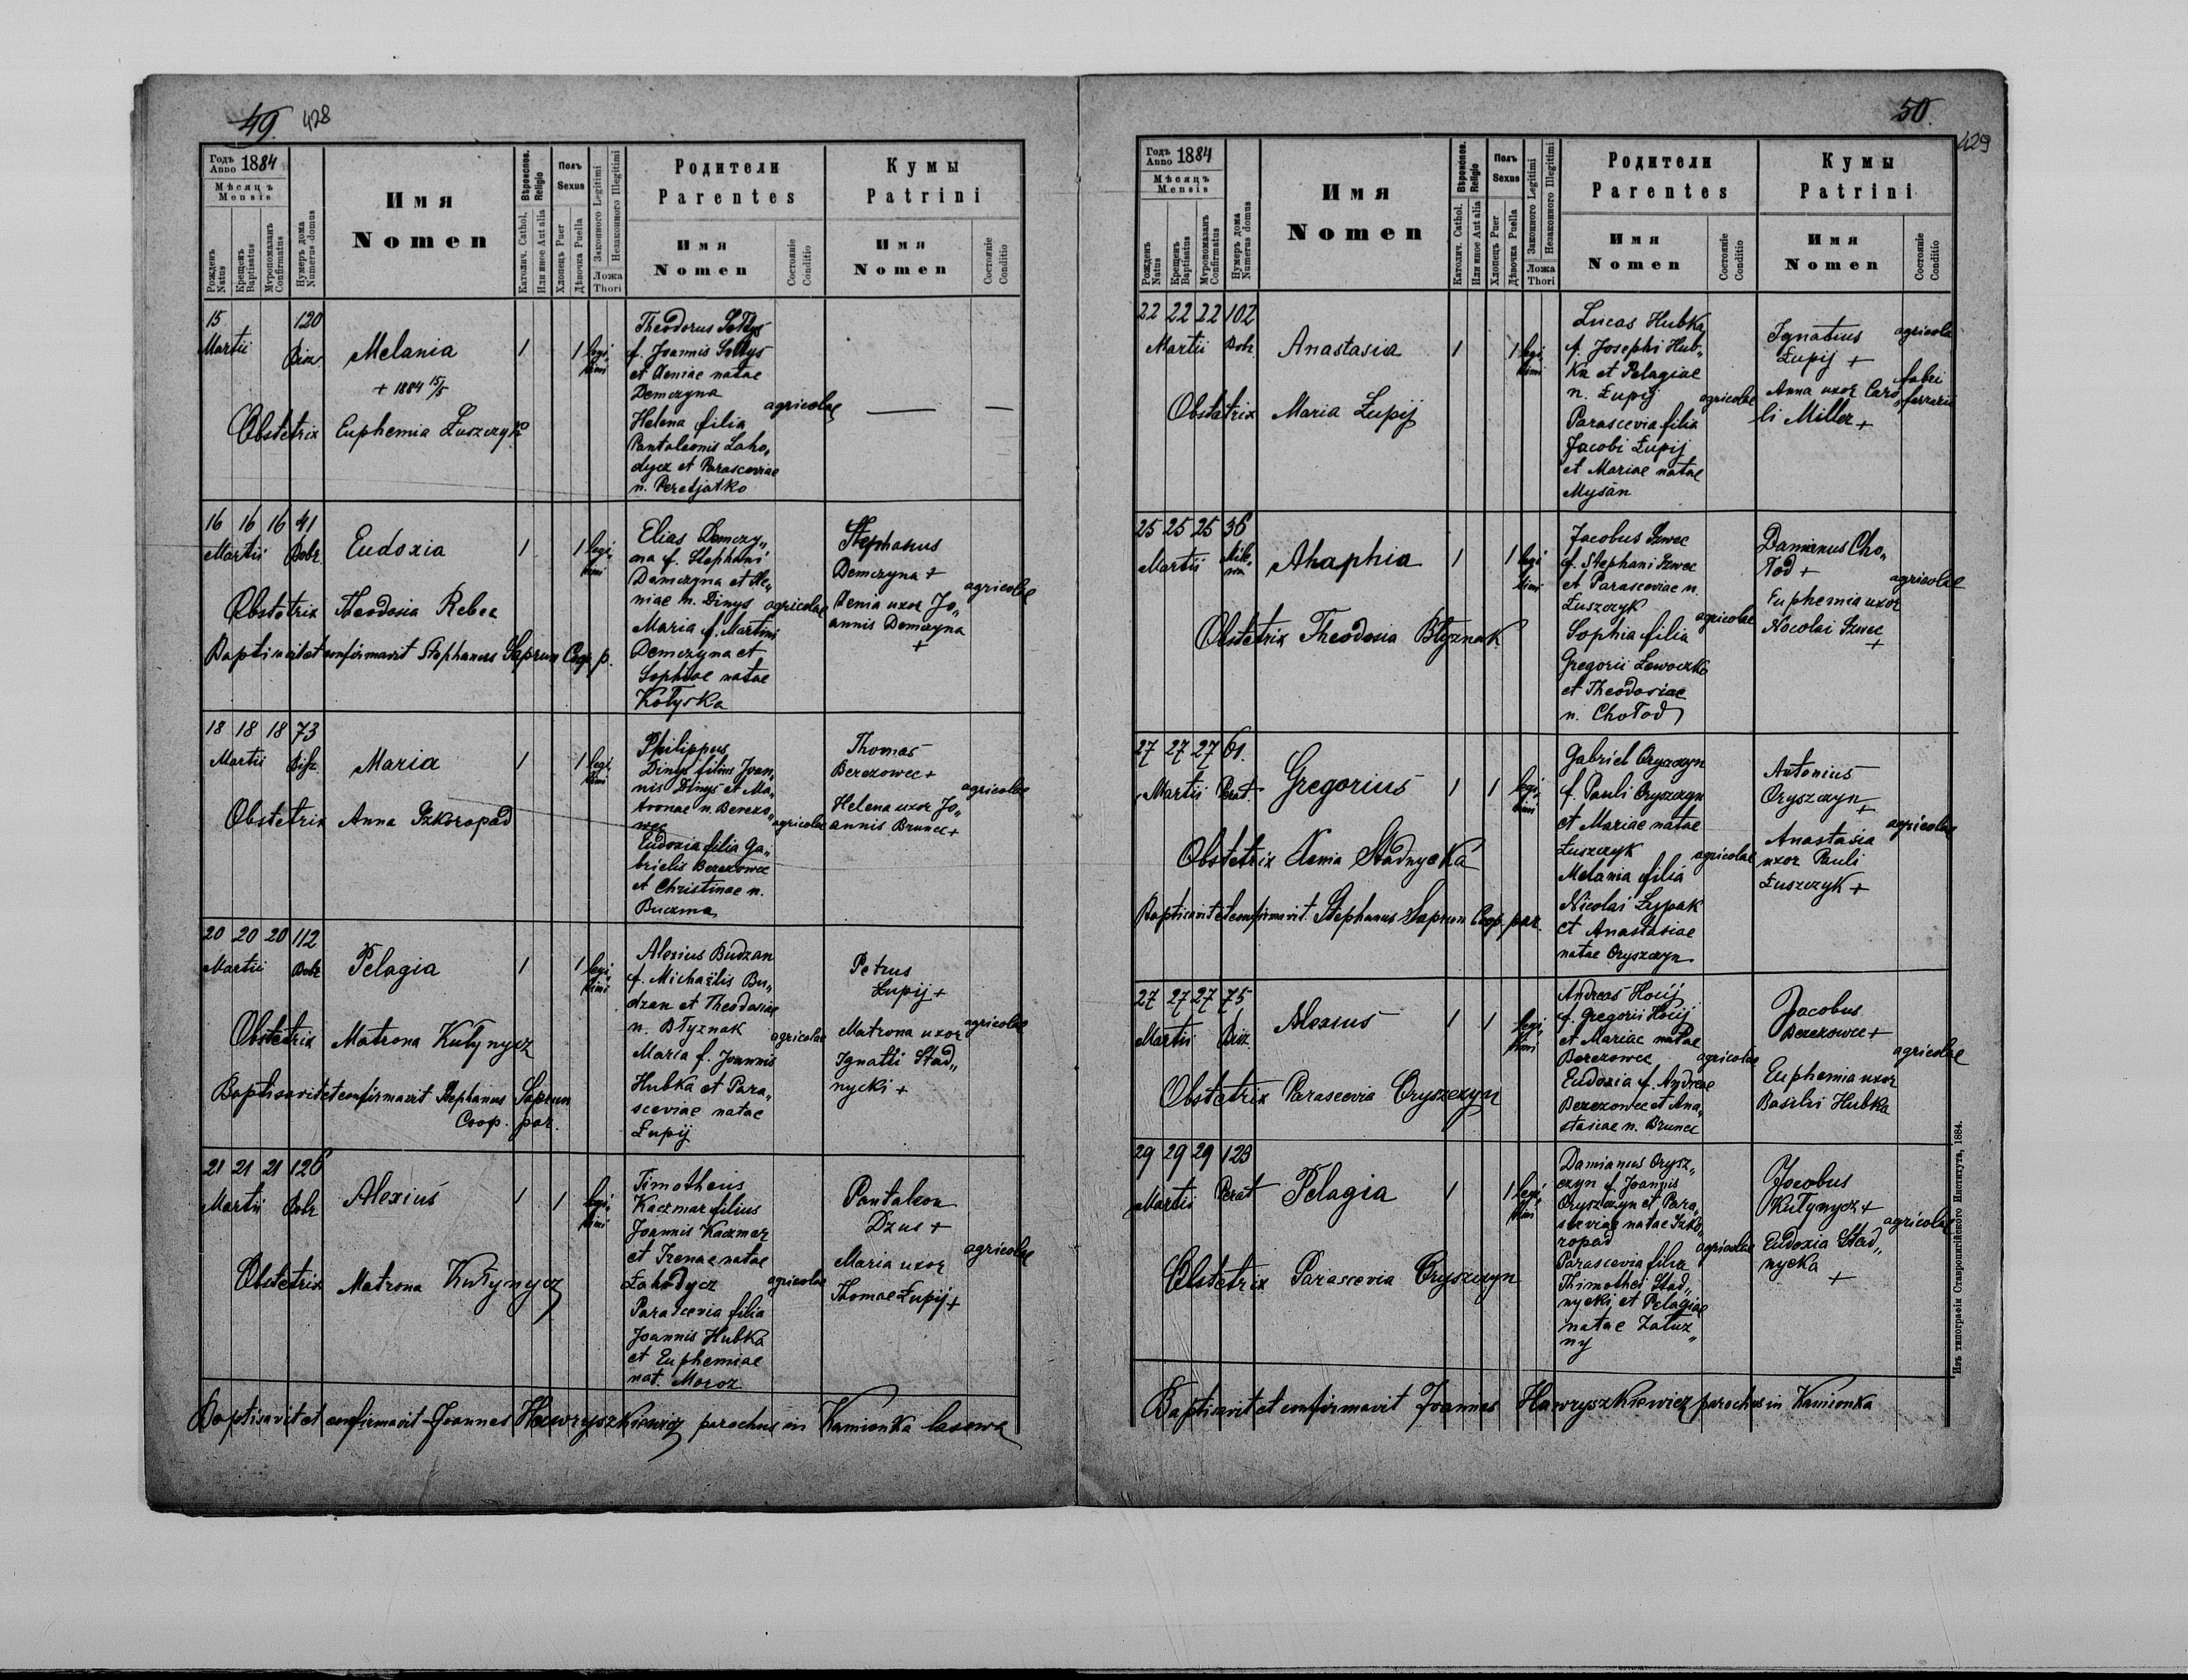 49. 428
Годъ Anno 1884
Мѣсяцъ Mensis
Рожденъ Natus
Крещенъ Baptisatus
Мѵропомазанъ Confirmatus
Нумеръ дома Numerus domus
Имя
Nomen
Вѣроиспов. Religio
Католич. Cathol.
Или иное Aut alia
Полъ Sexus
Хлопецъ Puer
Дѣвочка Puella
Законного Legitimi
Незаконного Illegitimi
Ложа Thori
Родители
Parentes
Имя
Nomen
Состояніе Conditio
Кумы
Patrini
Имя
Nomen
Состояніе Conditio
15 120
Martii
Melania 1 1 legi„
timi
+ 1884 15/5
Obstetrix Euphemia Łuszczyk
Theodorus Sołtys
f. Joannis Sołtys
et Xeniae natae
Demczyna
Helena filia
Pantaleonis Laho„
dycz et Parasceviae
n. Peretjatko
agricolae
— —
16 16 16 41
Martii Dobr.
Eudoxia 1 1 legi„
timi
Obstetrix Theodosia Rebec
Baptisavit et confirmavit Stephanus Saprun Coop. p.
Elias Demczy„
na f. Stephani
Demczyna et Xe„
niae n. Dinys
Maria f. Martini
Demczyna et
Sophiae natae
Kołyska
agricolae
Stephanus
Demczyna +
Xenia uxor Jo„
annis Demczyna
+
agricolae
18 18 18 73
Martii
Maria 1 1 legi„
timi
Obstetrix Anna Szkoropad
Philippus
Dinys filius Joan„
nis Dinys et Ma„
tronae n. Berezo„
wec
Eudoxia filia Ga„
brielis Berezowec
et Christinae n.
Buczma
agricolae
Thomas
Berezowec +
Helena uxor Jo„
annis Brunec +
agricolae
20 20 20 112
Martii Dobr
Pelagia 1 1 legi„
timi
Obstetrix Matrona Kułynycz
Baptisavit et confirmavit Stephanus Saprun
Coop. par.
Alexius Budzan
f. Michaëlis Bu„
dzan et Theodosiae
n. Błyznak
Maria f. Joannis
Hubka et Para„
sceviae natae
Łupij
agricolae
Petrus
Łupij +
Matrona uxor
Ignatii Stad„
nycki +
agricolae
21 21 21 126
Martii Dobr
Alexius 1 1 legi„
timi
Obstetrix Matrona Kułynycz
Timotheus
Kaczmar filius
Joannis Kaczmar
et Irenae natae
Łahodycz
Parascevia filia
Joannis Hubka
et Euphemiae
nat. Moroz
agricolae
Pantaleon
Dzus +
Maria uxor
Thomae Łupij +
agricolae
Baptisavit et confirmavit Joannes Hawryszkiewicz parochus in Kamionka lasowa
50.
429
Годъ Anno 1884
Мѣсяцъ Mensis
Рожденъ Natus
Крещенъ Baptisatus
Мѵропомазанъ Confirmatus
Нумеръ дома Numerus domus
Имя
Nomen
Вѣроиспов. Religio
Католич. Cathol.
Или иное Aut alia
Полъ Sexus
Хлопецъ Puer
Дѣвочка Puella
Законного Legitimi
Незаконного Illegitimi
Ложа Thori
Родители
Parentes
Имя
Nomen
Состояніе Conditio
Кумы
Patrini
Имя
Nomen
Состояніе Conditio
22 22 22 102
Martii Dobr
Anastasia 1 1 legi„
timi
Obstetrix Maria Łupij
Lucas Hubka
f. Josephi Hub„
ka et Pelagiae
n. Łupij
Parascevia filia
Jacobi Łupij
et Mariae natae
Mysan
agricolae
Ignatius
Łupij +
Anna uxor Caro„
li Miller +
agricola
fabri
ferrarii
25 25 25 36
Martii
Ahaphia 1 1 legi
timi
Obstetrix Theodosia Błyznak
Jacobus Szwec
f. Stephani Szwec
et Parasceviae n.
Łuszczyk
Sophia filia
Gregorii Lewoczko
et Theodosiae
n. Chołod
agricolae
Damianus Cho„
łod +
Euphemia uxor
Nocolai Szwec
+
agricolae
27 27 27 61.
Martii Perat.
Gregorius 1 1 legi„
timi
Obstetrix Xenia Stadnycka
Baptisavit et confirmavit Stephanus Saprun Coop. par.
Gabriel Oryszczyn
f. Pauli Oryszczyn
et Mariae natae
Łuszczyk
Melania filia
Nicolai Lypak
et Anastasiae
natae Oryszczyn
agricolae
Antonius
Oryszczyn
+
Anastasia
uxor Pauli
Łuszczyk +
agricolae
27 27 27 75
Martii
Alexius 1 1 legi„
timi
Obstetrix Parascevia Oryszczyn
Andreas Hoij
f. Gregorii Hoij
et Mariae natae
Berezowec
Eudoxia f. Andreae
Berezowec et Ana„
stasiae n. Brunec
agricolae
Jacobus
Berezowec +
Euphemia uxor
Basilii Hubka
agricolae
29 29 29 123
Martii Perat
Pelagia 1 1 legi„
timi
Obstetrix Parascevia Oryszczyn
Damianus Orysz„
czyn f. Joannis
Oryszczyn et Para„
sceviae natae Szko„
ropad
Parascevia filia
Thimothei Stad„
nycki et Pelagiae
natae Załuz„
ny
agricolae
Jacobus
Kułynycz +
Eudoxia Stad„
nycka
+
agricolae
Baptisavit et confirmavit Joannes Hawryszkiewicz parochus in Kamionka
Изъ типографіи Ставропигійского Института, 1884.